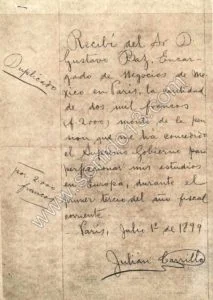 Recibí del Sr D.
Gustavo Baz, Encar-
gado de Negocios de Mé-
xico en París, la cantidad
de dos mil francos
(f. 2000), monto de la pen
sion que me ha concedido
el Supremo Gobierno para
perfeccionar mis estudios
en Europa, durante el
primer tercio del año fiscal
corriente.
París, Julio 1º de 1899
Julian Carrillo
Duplicado
por 2000
francos